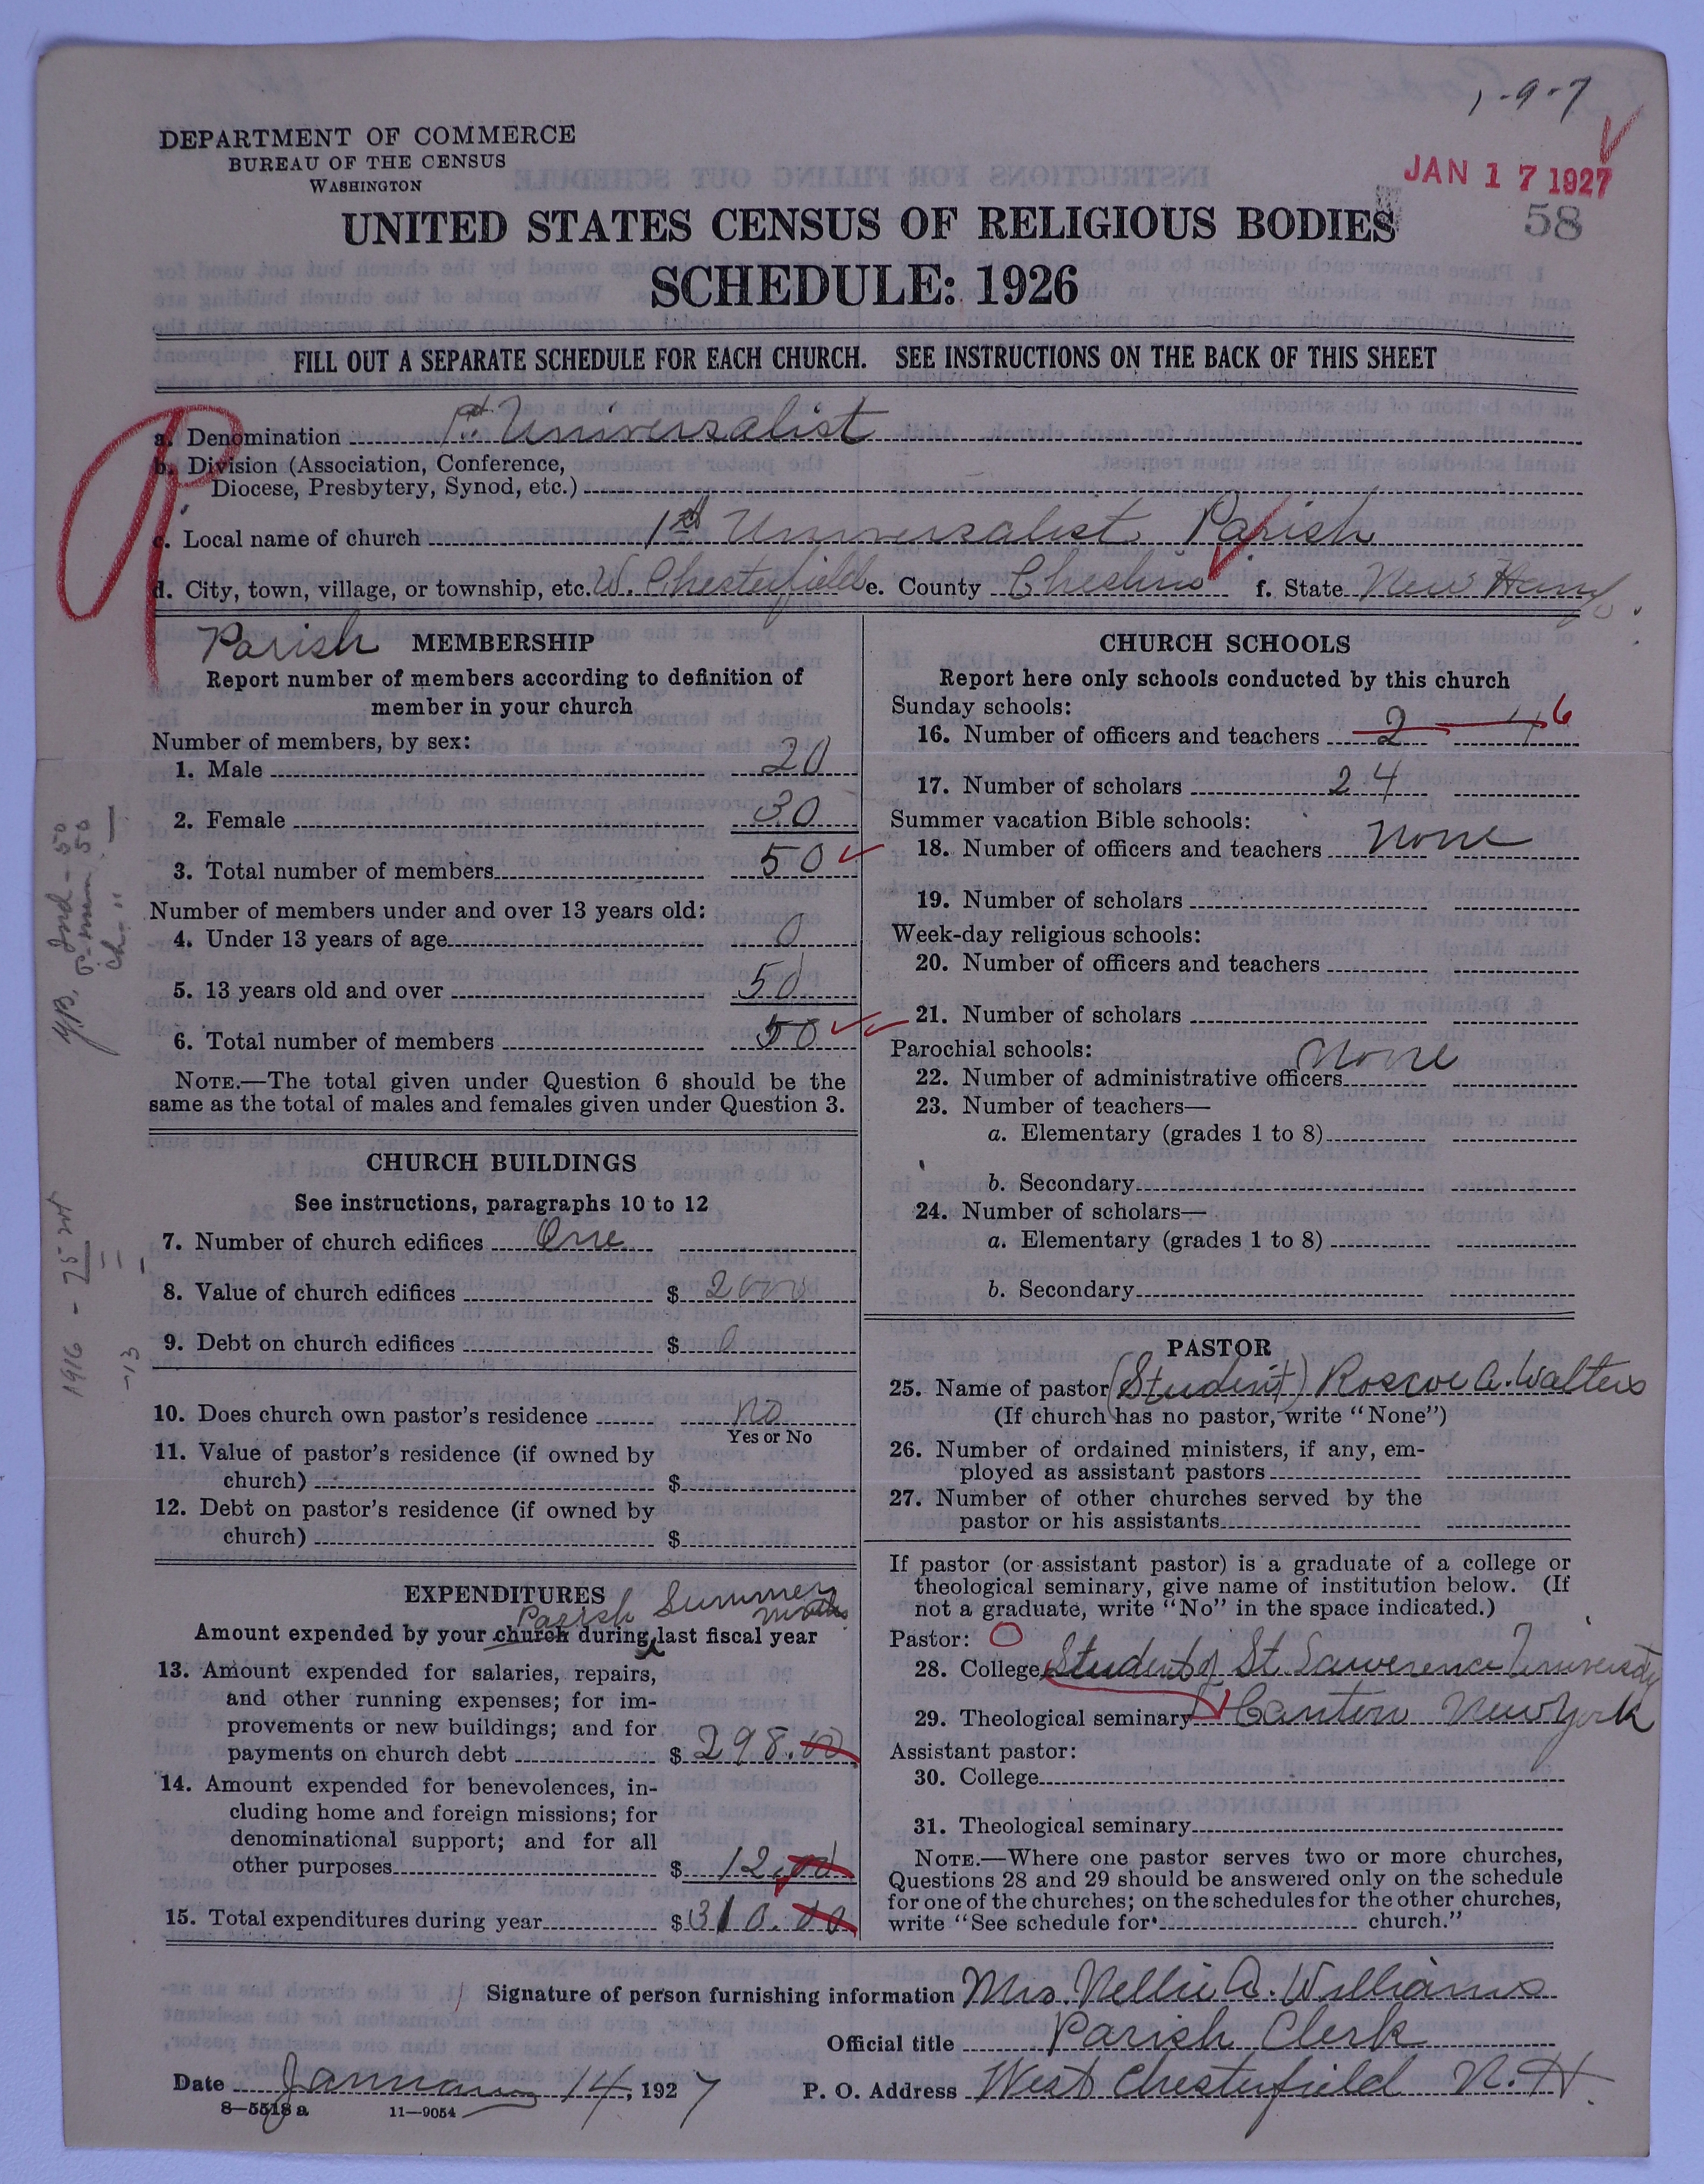 1-9-7
DEPARTMENT OF COMMERCE
BUREAU OF THE CENSUS
WASHINGTON
JAN 17 1927
58
UNITED STATES CENSUS OF RELIGIOUS BODIES
SCHEDULE: 1926
FILL OUT A SEPARATE SCHEDULE FOR EACH CHURCH. SEE INSTRUCTIONS ON THE BACK OF THIS SHEET
a. Denomination 1st Universalist
b. Division (Association, Conference,
Diocese, Presbytery, Synod, etc.)
c. Local name of church 1st Universalist Parish
d. City, town, village, or township, etc. W. Chesterfield e. County Cheshire f. State New Hamp.
Parish MEMBERSHIP
Report number of members according to definition of
member in your church
Number of members, by sex:
1. Male 20
2. Female 30
3. Total number of members 50
Number of members under and over 13 years old:
4. Under 13 years of age 0
5. 13 years old and over 50
6. Total number of members 50
NOTE.—The total given under Question 6 should be the
same as the total of males and females given under Question 3.
CHURCH BUILDINGS
See instructions, paragraphs 10 to 12
7. Number of church edifices One
8. Value of church edifices $ 2000
9. Debt on church edifices $ 0
10. Does church own pastor's residence no
Yes or No
11. Value of pastor's residence (if owned by
church) $
12. Debt on pastor's residence (if owned by
church) $
EXPENDITURES
Parish Summer months
Amount expended by your church during last fiscal year
13. Amount expended for salaries, repairs,
and other running expenses; for im-
provements or new buildings; and for
payments on church debt $ 298.00
14. Amount expended for benevolences, in-
cluding home and foreign missions; for
denominational support; and for all
other purposes $ 12.00
15. Total expenditures during year $ 310.00
CHURCH SCHOOLS
Report here only schools conducted by this church
Sunday schools:
16. Number of officers and teachers 2 4 6
17. Number of scholars 24
Summer vacation Bible schools:
18. Number of officers and teachers None
19. Number of scholars
Week-day religious schools:
20. Number of officers and teachers
21. Number of scholars
Parochial schools: None
22. Number of administrative officers
23. Number of teachers—
a. Elementary (grades 1 to 8)
b. Secondary
24. Number of scholars—
a. Elementary (grades 1 to 8)
b. Secondary
PASTOR
25. Name of pastor (Student) Roscoe A. Walters
(If church has no pastor, write "None")
26. Number of ordained ministers, if any, em-
ployed as assistant pastors
27. Number of other churches served by the
pastor or his assistants
If pastor (or assistant pastor) is a graduate of a college or
theological seminary, give name of institution below. (If
not a graduate, write "No" in the space indicated.)
Pastor:
28. College Student of St. Lawerence University
29. Theological seminary Canton New York
Assistant pastor:
30. College
31. Theological seminary
NOTE.—Where one pastor serves two or more churches,
Questions 28 and 29 should be answered only on the schedule
for one of the churches; on the schedules for the other churches,
write "See schedule for church."
Signature of person furnishing information Mrs. Nellie A. Williams
Official title Parish Clerk
Date January 14, 1927 P. O. Address West Chesterfield N. H.
8—5518 a 11—9054
1916 - 25
-13